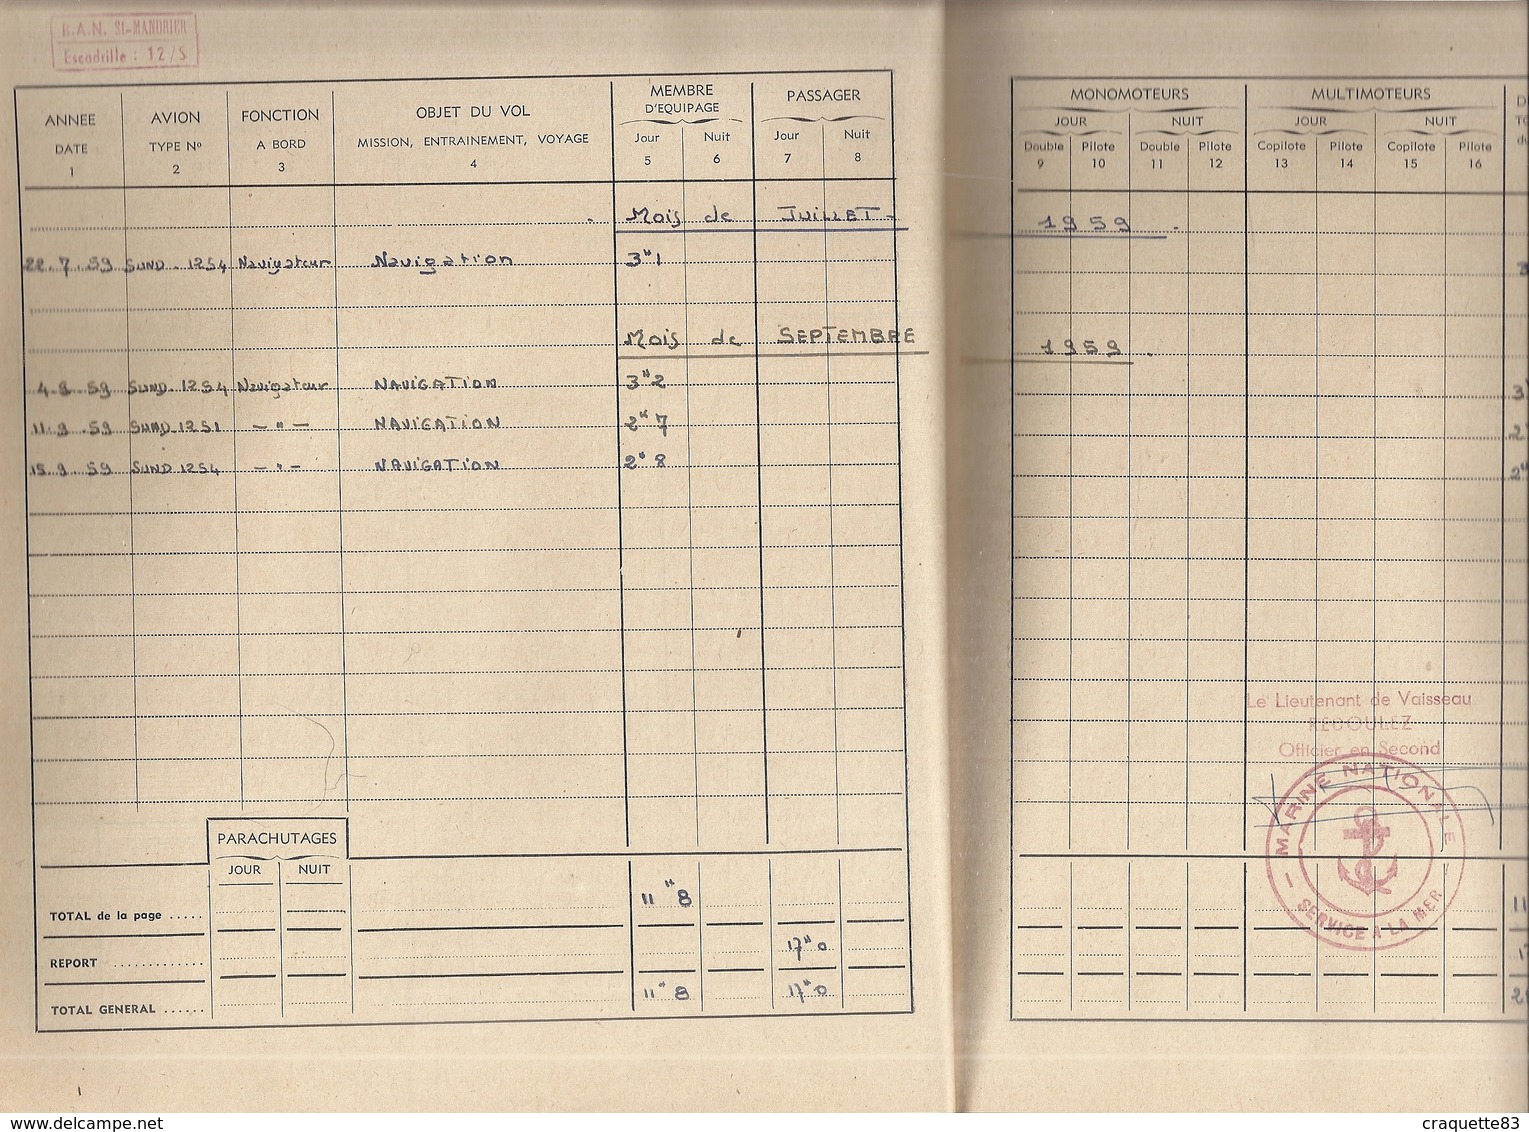 B.A.N. St-MANDRIER
Escadrille : 12/S
ANNEE DATE 1
AVION TYPE Nº 2
FONCTION A BORD 3
OBJET DU VOL MISSION, ENTRAINEMENT, VOYAGE 4
MEMBRE D'EQUIPAGE
Jour 5 Nuit 6
PASSAGER
Jour 7 Nuit 8
MONOMOTEURS
JOUR NUIT
Double 9 Pilote 10 Double 11 Pilote 12
MULTIMOTEURS
JOUR NUIT
Copilote 13 Pilote 14 Copilote 15 Pilote 16
Mois de JUILLET - 1959.
22.7.59 SUND. 1254 Navigateur Navigation 3H1
Mois de SEPTEMBRE 1959.
4.9.59 SUND. 1254 Navigateur NAVIGATION 3H2
11.9.59 SUND 1251 — " — NAVIGATION 2H7
15.9.59 SUND 1254 — " — NAVIGATION 2H8
Le Lieutenant de Vaisseau
Officier en Second
MARINE NATIONALE
— SERVICE A LA MER —
PARACHUTAGES
JOUR NUIT
TOTAL de la page ..... 11H8
REPORT ............ 17H0
TOTAL GENERAL ...... 11H8 17H0
www.delcampe.net
craquette83